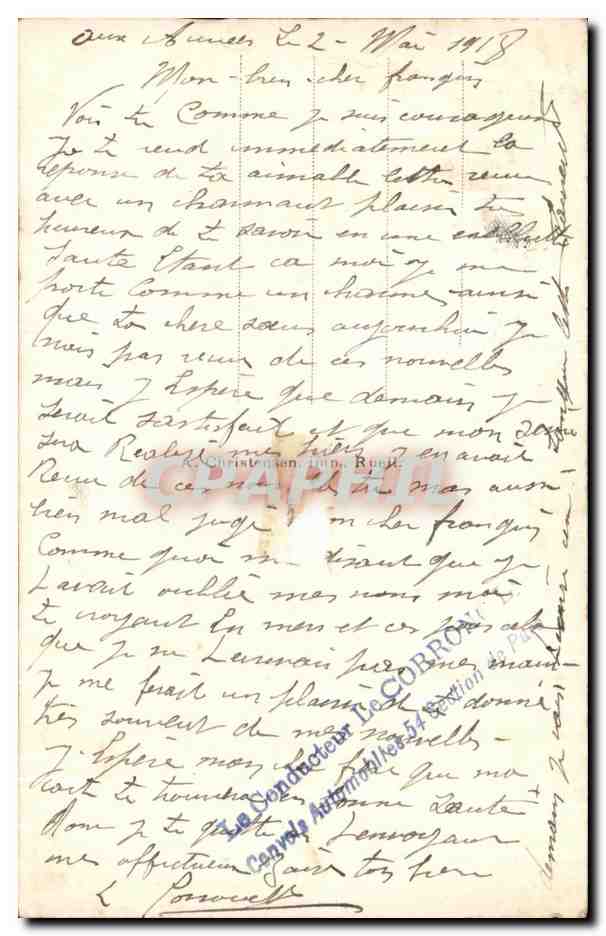 aux Armées Le 2 - Mai 1918
Mon bien cher françois
Vois tu Comme je suis courageux
Je te rend immediatement la
reponse de ta aimable lettre reçue
avec un charmant plaisir très
heureux de te savoir en une excellente
Santé Etant ca moi je me
porte Comme un charme ainsi
que ta chere soeur aujourdhui je
nais pas reçue de ces nouvelles
mais j Espère que demain je
serait satisfait et que mon
sera Realisé mes hier j en avait
A. Christensen, imp., Rueil.
Reçue de ces tu mas aussi
bien mal jugé mon cher françois
Comme quoi me disant que je
t avait oublié mes nous moi
te croyant En mer et ces pour cela
que je ne t ecrivais pas mes maint-
je me ferait un plaisir de te donné
très souvent de mes nouvelles -
j Espère mon cher frère que ma
carte te trouvera en bonne Santé
Donc je te quitte en t envoyant
mes affectueux ton bien
L
demain je vais
Le Conducteur Le CORRON
Convois Automobiles 54 Section de Pa
CPAPHIL